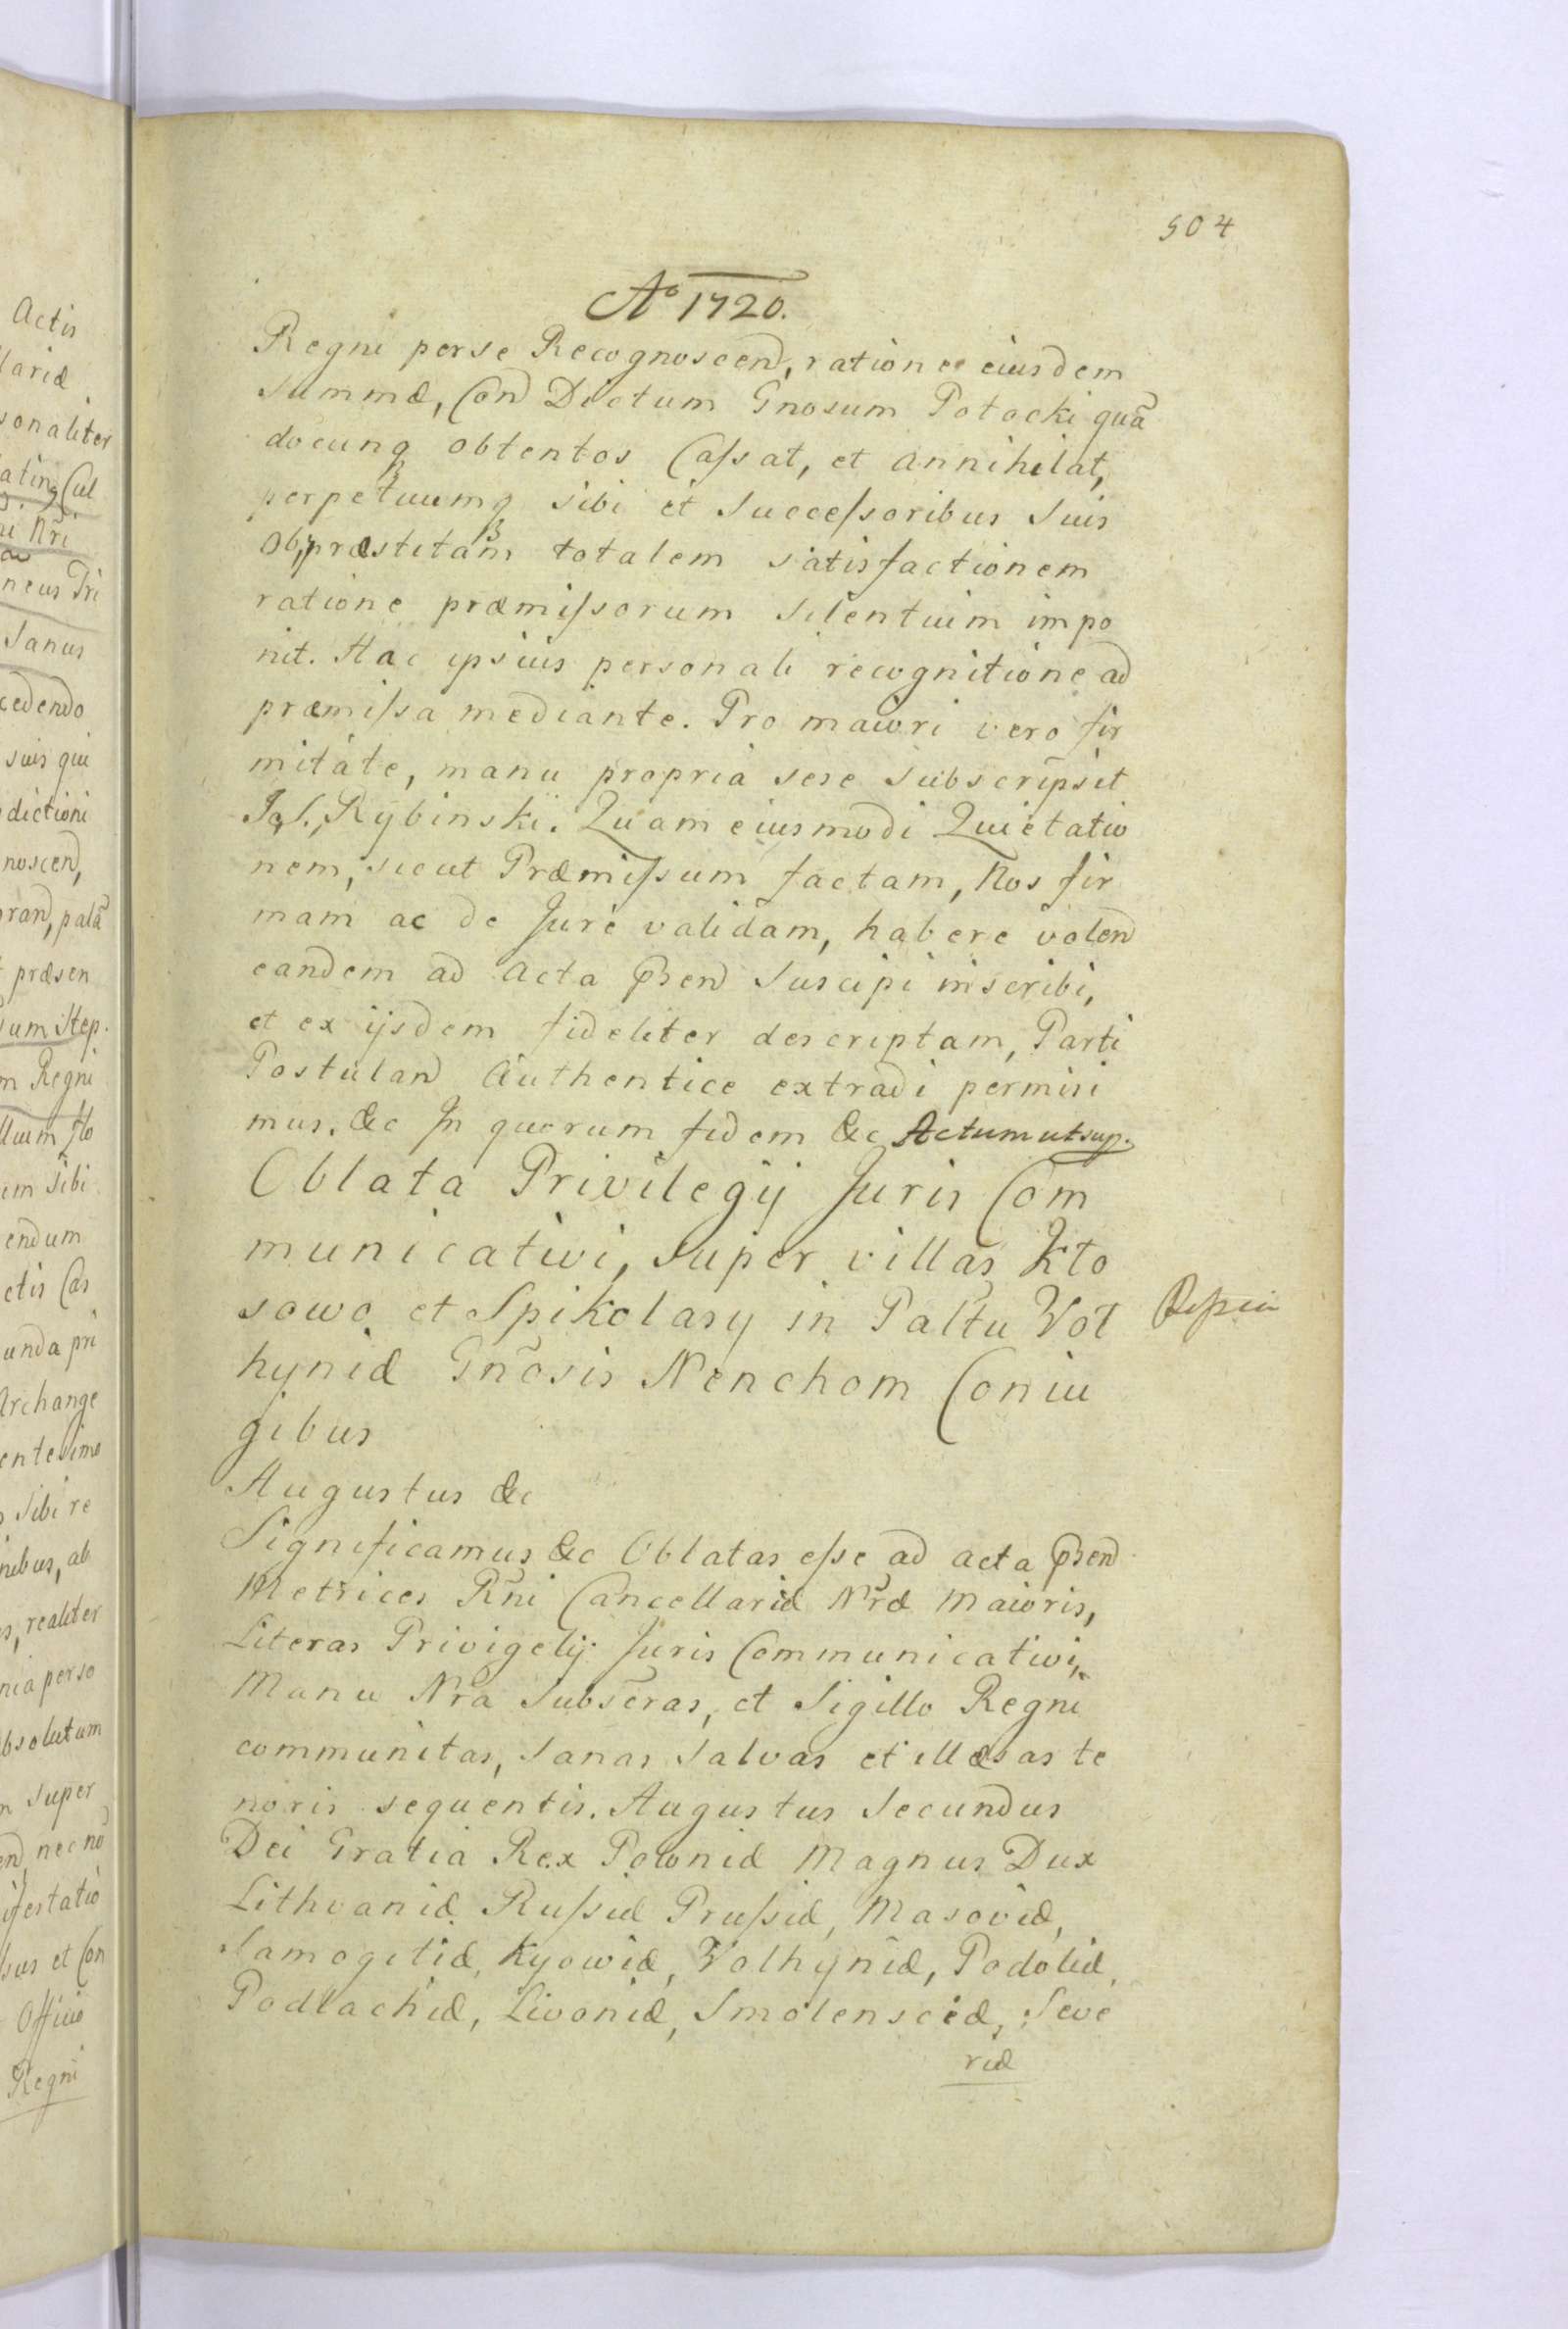 504
Ao 1720.
Regni per se Recognoscend, ratione eiusdem
summæ, Con Dictum Gnosum Potocki quã
docunq obtentos Caſsat, et annihilat,
perpetuumq sibi et Succeſsoribus Suis
Ob præstitam totalem satisfactionem
ratione præmiſsorum Silentium impo
nit. Hac ipsius personali recognitione ad
præmiſsa mediante. Pro maiori vero fir
mitate, manu propria sese Subscripsit
J. S. Rybinski. Quam eiusmodi Quietatio
nem, sicut Præmiſsum factam, Nos fir
mam ac de Jure validam, habere volend
eandem ad Acta Pßend Suscipi inscribi,
et ex ijsdem fideliter descriptam, Parti
Postuland Authentice extradi permisi
mus. &c Jn quorum fidem &c Actum ut sup.
Oblata Privilegij Juris Com
municativi, super villas Kto
sowo et Spikolasy in Paltu Vol
hyniæ Gnosis Nenchom Coniu
gibus
Augustus &c
Significamus &c Oblatas eſse ad acta Pßend
Metrices Rñi Cancellariæ Nræ Maioris,
Literas Privigelij Juris Communicativi,
Manu Nra Subscras, et Sigillo Regni
communitas, Sanas Salvas et illæsas te
noris sequentis. Augustus Secundus
Dei Gratia Rex Poloniæ Magnus Dux
Lithvaniæ Ruſsiæ Pruſsiæ, Masoviæ,
Samogitiæ, Kyoviæ, Volhyniæ, Podoliæ,
Podlachiæ, Livoniæ, Smolensciæ, Seve
riæ
Actis
lariæ
sonaliter
Nri
Sanus
cedendo
suis qui
dictioni
noscend,
rand, palã
præsen
um Step.
m Regni
em Sibi
endum
ctis Cas
unda pri
Archange
entesimo
Sibi re
nibus, ab
s, realiter
nia perso
bsolutum
n super
end, nec nõ
ifestatio
sus et Con
Officio
Regni